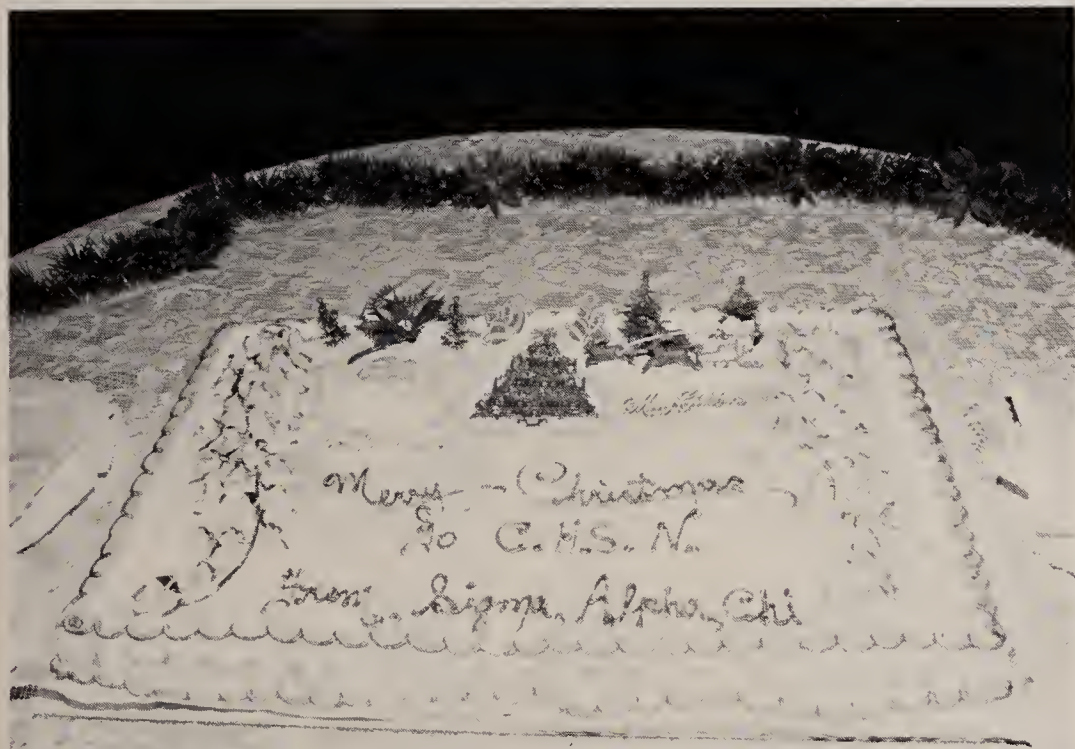 Merry - Christmas
To C.H.S.N.
From Sigma Alpha Chi